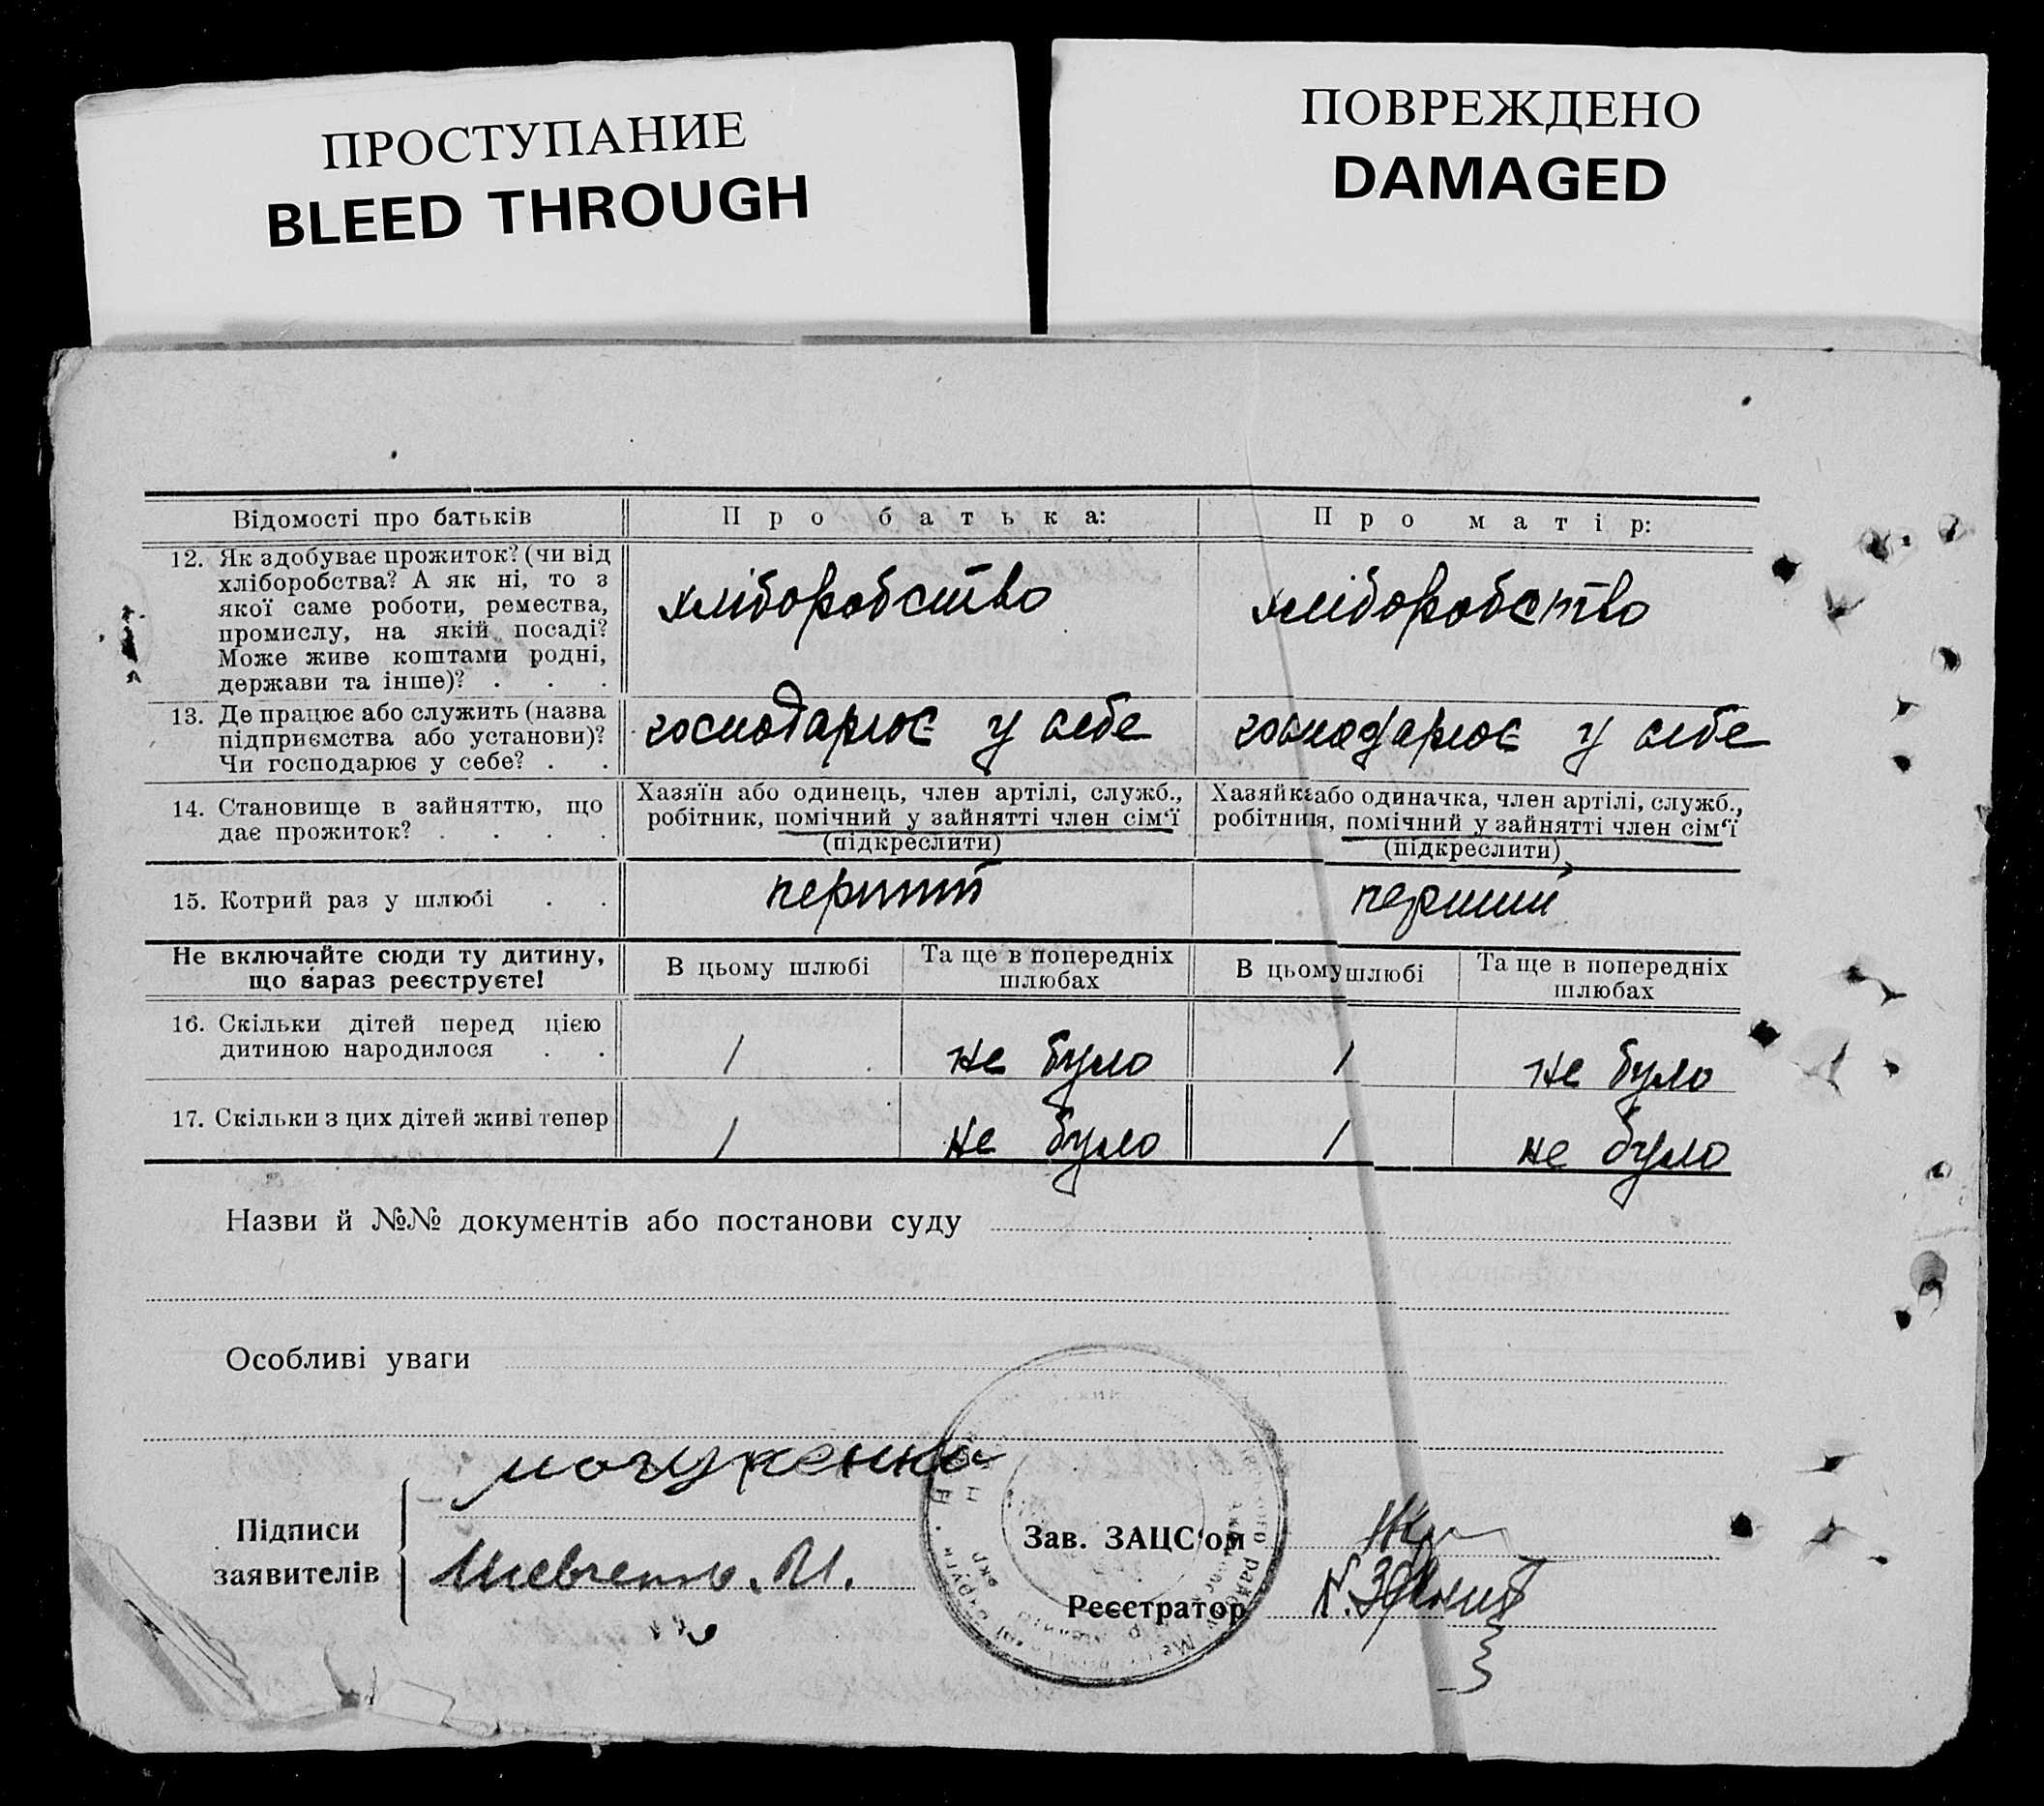 ПРОСТУПАНИЕ
BLEED THROUGH
ПОВРЕЖДЕНО
DAMAGED
Відомості про батьків
Про батька:
Про матір:
12. Як здобуває прожиток? (чи від
хліборобства? А як ні, то з
якої саме роботи, ремества,
промислу, на якій посаді?
Може живе коштами родні,
держави та інше)? . . .
хліборобство
хліборобство
13. Де працює або служить (назва
підприємства або установи)?
Чи господарює у себе? . .
господарює у себе
господарює у себе
14. Становище в зайняттю, що
дає прожиток? . . . .
Хазяїн або одинець, член артілі, служб.,
робітник, помічний у зайнятті член сім‘ї
(підкреслити)
Хазяйка або одиначка, член артілі, служб.,
робітниця, помічний у зайнятті член сім‘ї
(підкреслити)
15. Котрий раз у шлюбі . .
перший
перший
Не включайте сюди ту дитину,
що зараз реєструєте!
В цьому шлюбі
Та ще в попередніх
шлюбах
В цьому шлюбі
Та ще в попередніх
шлюбах
16. Скільки дітей перед цією
дитиною народилося . .
1
не було
1
не було
17. Скільки з цих дітей живі тепер
1
не було
1
не було
Назви й №№ документів або постанови суду
Особливі уваги
Підписи
заявителів
Шевченко. И.
Зав. ЗАЦС‘ом
Реєстратор